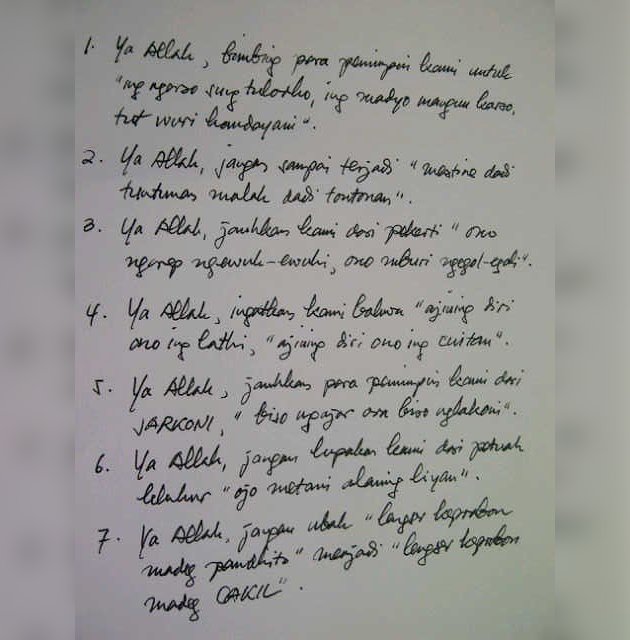 1. Ya Allah, bimbing para pemimpin kami untuk
"ing ngarso sung tulodho, ing madyo mangun karso,
tut wuri handayani".
2. Ya Allah, jangan sampai terjadi "mestine dadi
tuntunan malah dadi tontonan".
3. Ya Allah, jauhkan kami dari pekerti "ono
ngarep ngewuh-ewuhi, ono mburi ngegol-egoli".
4. Ya Allah, ingatkan kami bahwa "ajining diri
ono ing lathi, "ajining diri ono ing
5. Ya Allah, jauhkan para pemimpin kami dari
JARKONI, "biso ngajar ora biso nglakoni".
6. Ya Allah, jangan lupakan kami dari petuah
leluhur "ojo metani alaning liyan".
7. Ya Allah, jangan ubah "lengser keprabon
madeg pandhito" menjadi "lengser keprabon
madeg CAKIL".